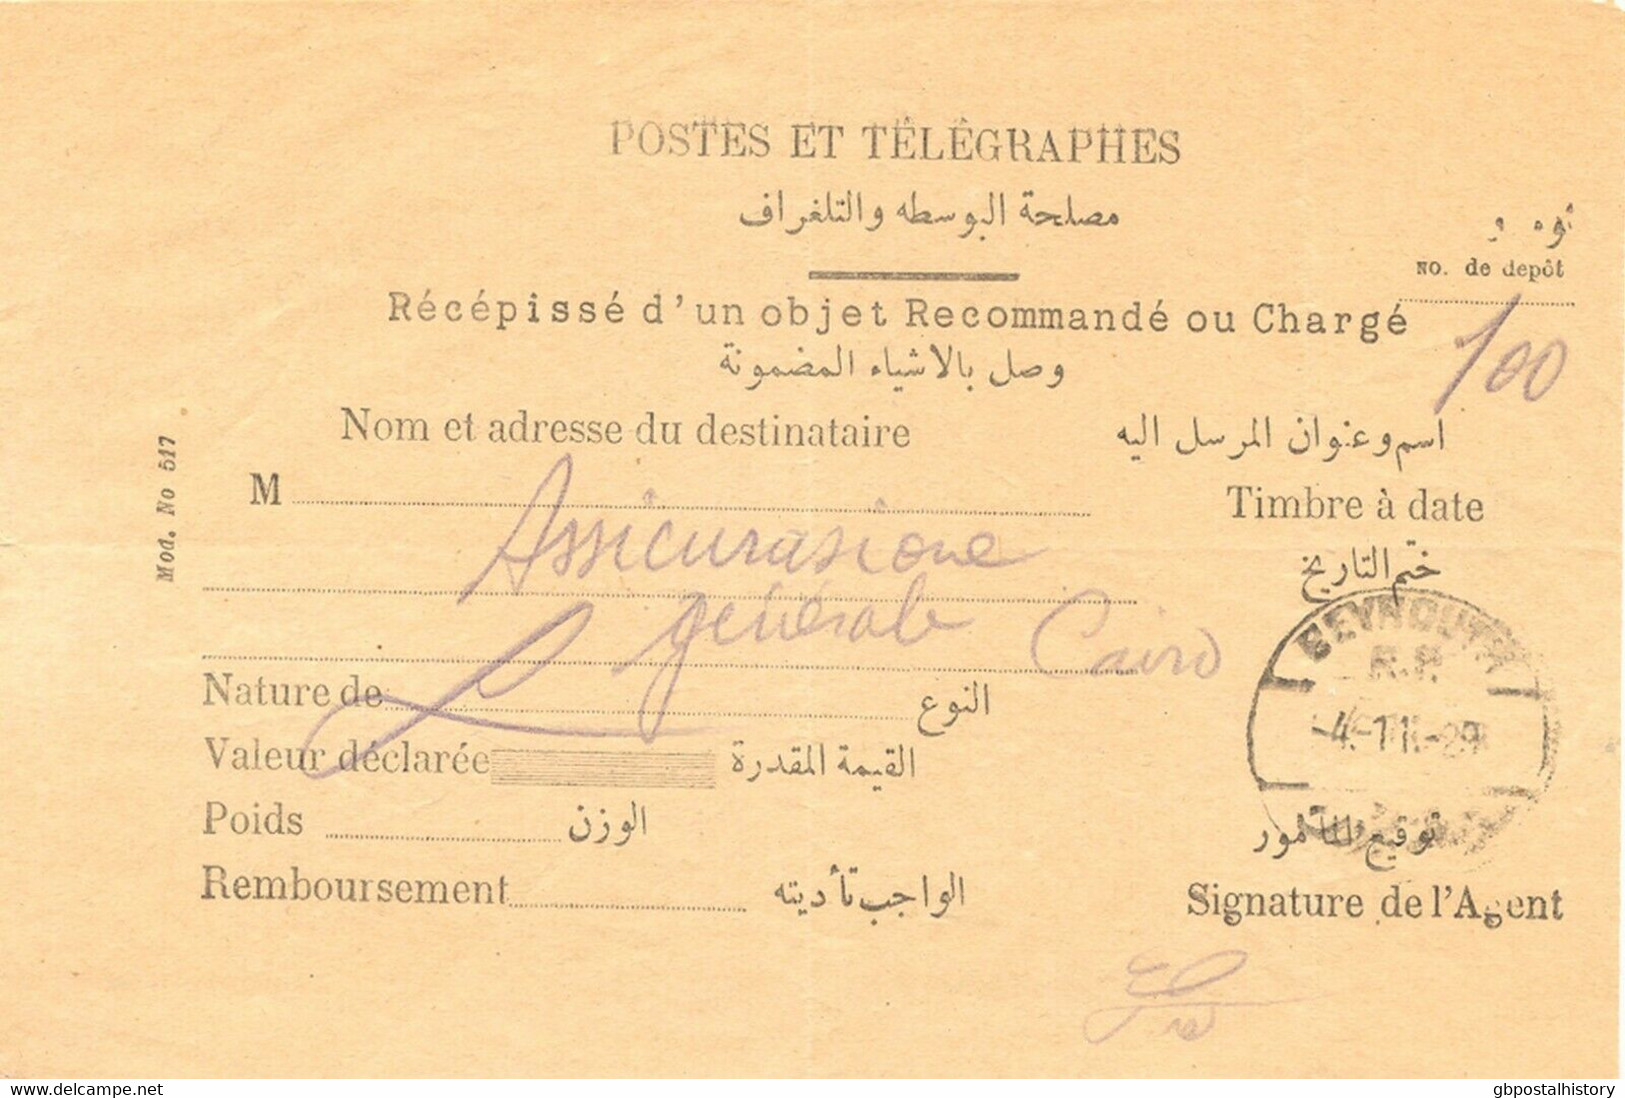 POSTES ET TÉLÉGRAPHES
مصلحة البوسطه والتلغراف
NO. de depôt
Récépissé d'un objet Recommandé ou Chargé
100
وصل بالاشياء المضمونة
Nom et adresse du destinataire
اسم وعنوان المرسل اليه
Mod. No 517
M
Timbre à date
Assicurasione
ختم التاريخ
générale Cairo
BEYROUTH
R.P.
Nature de
النوع
Valeur déclarée
القيمة المقدرة
Poids
الوزن
توقيع المأمور
Remboursement
الواجب تأديته
Signature de l'Agent
delcampe.net
gbpostalhistory